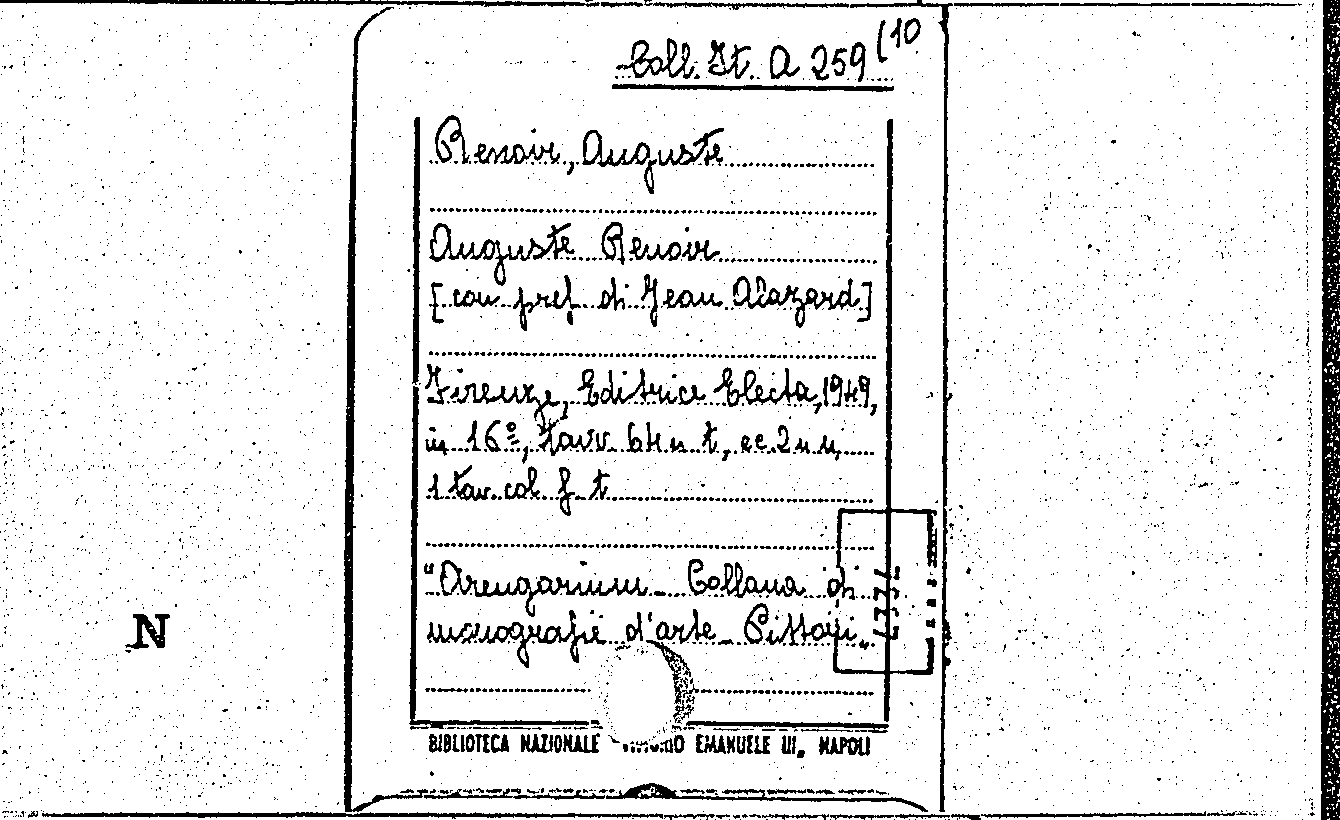 Coll. It. A 259 (10
Renoir, Auguste
Auguste Renoir
[con pref. di Jean Alazard]
Firenze, Editrice Electa, 1949,
in 16º, tavv. 64 n. t., cc. 2 n. n.,
1 tav. col. f. t.
"Arengarium - Collana di
monografie d'arte - Pittori„
N
BIBLIOTECA NAZIONALE EMANUELE III, NAPOLI